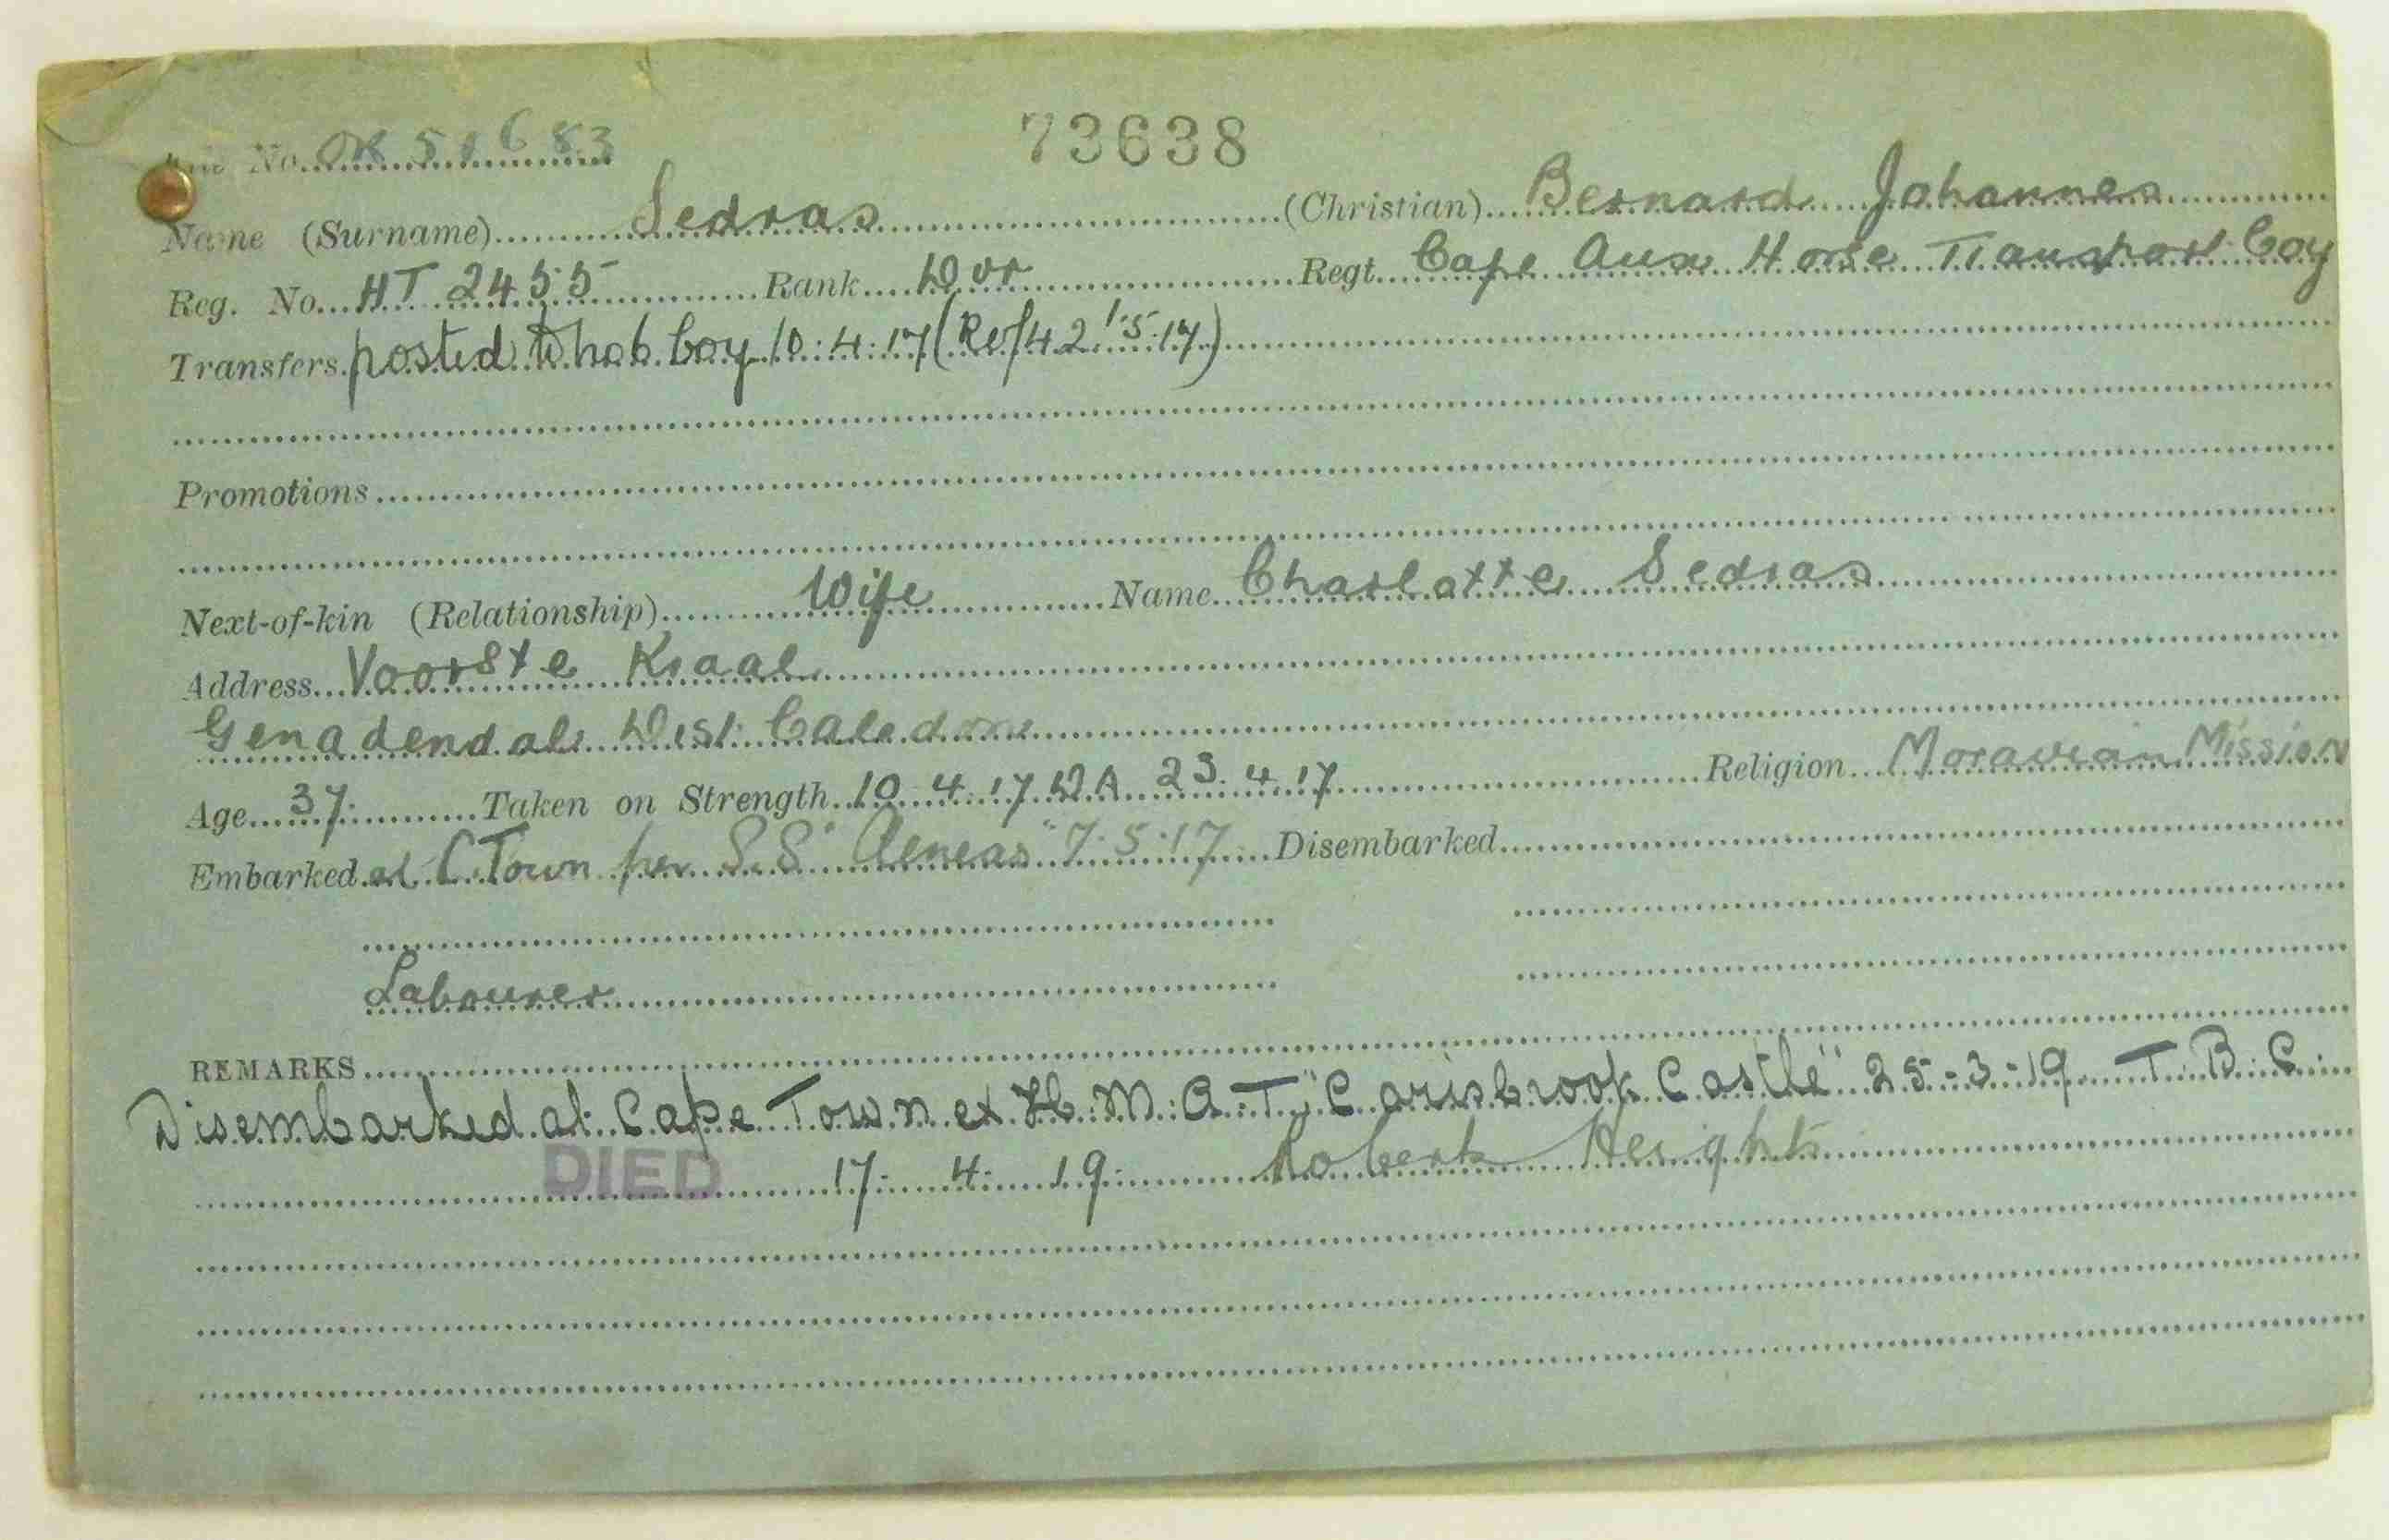 No. OR 51683
73638
Name (Surname) Sedras (Christian) Bernard Johannes
Reg. No. HT 2455 Rank Dvr Regt. Cape Aux Horse Transport Coy
Transfers posted to No 6 Coy 10.4.17 (Ref 42 1.5.17)
Promotions
Next-of-kin (Relationship) Wife Name Charlotte Sedras
Address Voorste Kraal
Genadendal Dist Caledon
Age 37 Taken on Strength 10.4.17 DA 23.4.17 Religion Moravian Mission
Embarked at C Town per S.S. "Aeneas" 7.5.17 Disembarked
Labourer
REMARKS
Disembarked at Cape Town ex H.M.A.T. "Carisbrook Castle" 25-3-19 T.B.C.
DIED 17.4.19. Roberts Heights